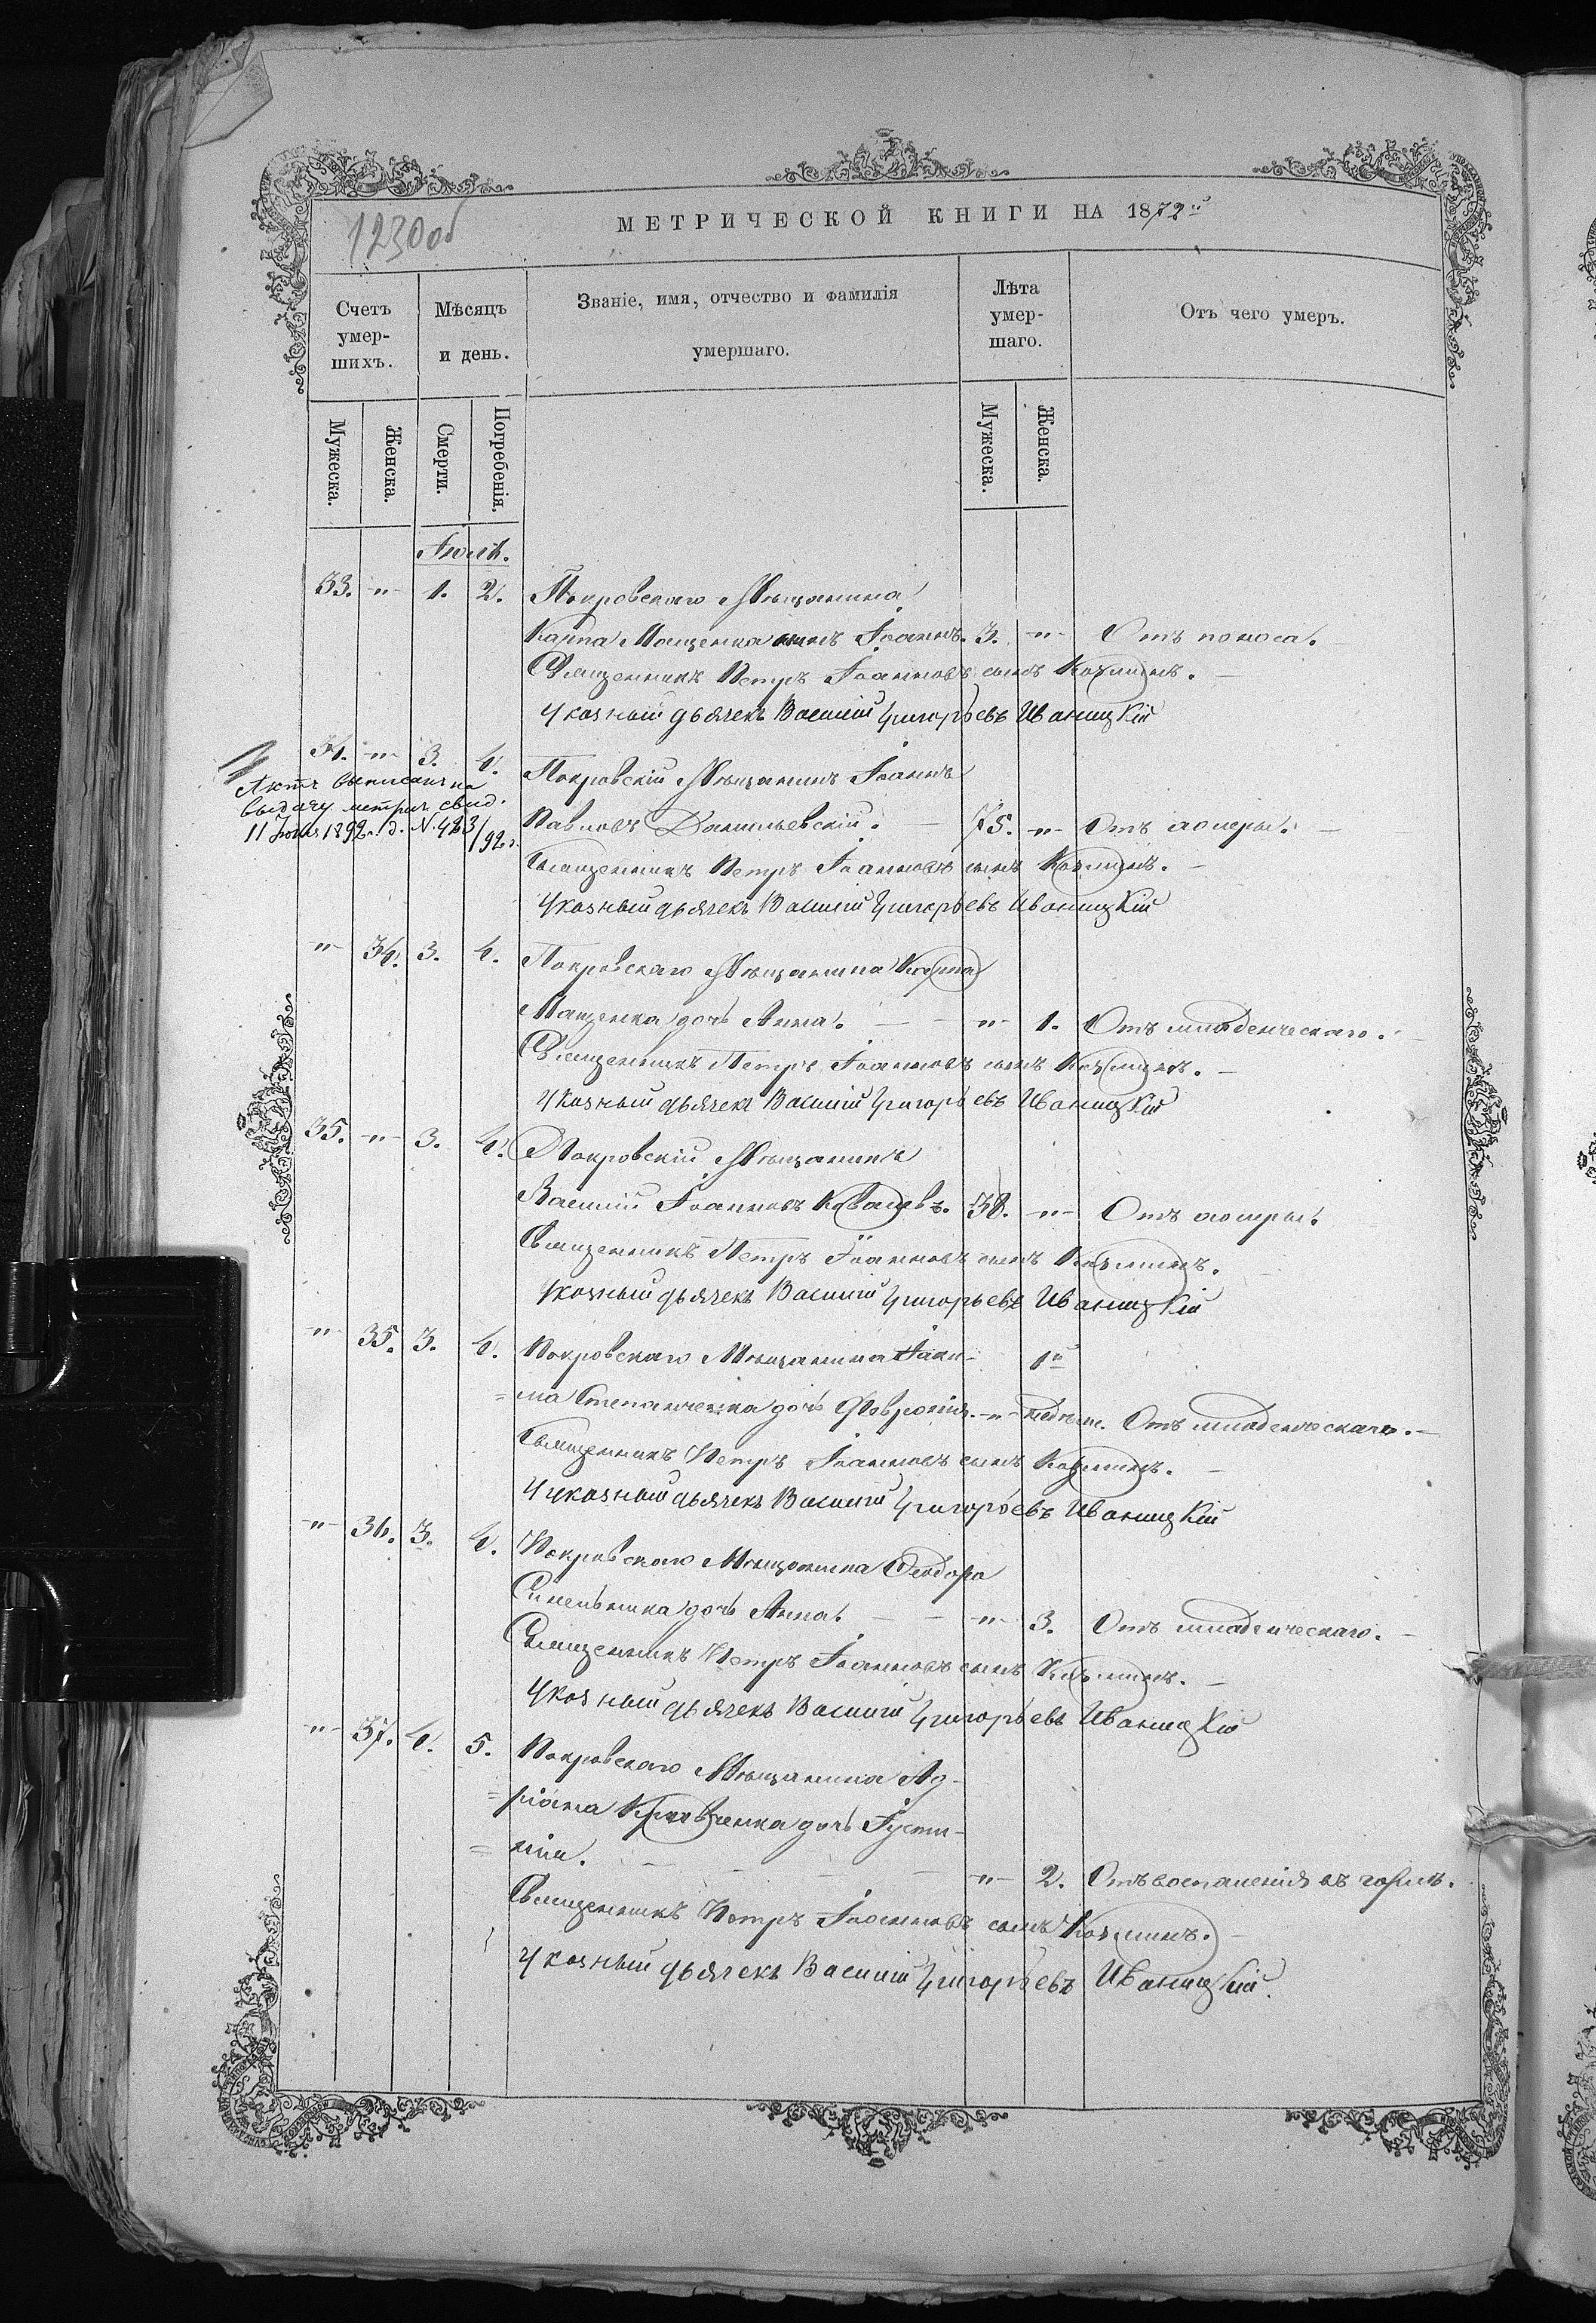 1230об
МЕТРИЧЕСКОЙ КНИГИ НА 1872й
Счетъ умер-шихъ. Мѣсяцъ и день. Званіе, имя, отчество и фамилія умершаго. Лѣта умер-шаго. Отъ чего умеръ.
Мужеска. Женска. Смерти. Погребенія. Мужеска. Женска.
Іюль.
33. „ 1. 2. Покровскаго Мѣщанина
Карпа Мащенка сынъ Іоаннъ. 3. „ Отъ поноса.
Священникъ Петръ Іоанновъ сынъ Козминъ.
Указный дьячекъ Василій Григорьевъ Иваницкій
34. „ 3. 4. Покровскій Мѣщанинъ Іоаннъ
Актъ выписанъ на
выдачу метрич. свид.
11 Іюля 1892 г. д. № 423/92 г.
Павловъ Данильевскій. 75. „ Отъ холеры.
Священникъ Петръ Іоанновъ сынъ Козминъ.
Указный дьячекъ Василій Григорьевъ Иваницкій
„ 34. 3. 4. Покровскаго Мѣщанина Карпа
Мащенка дочь Анна. „ 1. Отъ младенческаго.
Священникъ Петръ Іоанновъ сынъ Козминъ.
Указный дьячекъ Василій Григорьевъ Иваницкій
35. „ 3. 4. Покровскій Мѣщанинъ
Василій Іоанновъ Ковалевъ. 38. „ Отъ холеры.
Священникъ Петръ Іоанновъ сынъ Козминъ.
Указный дьячекъ Василій Григорьевъ Иваницкій
„ 35. 3. 4. Покровскаго Мѣщанина 1й
Степанченка дочь Февронія. „ Отъ младенческаго.
Священникъ Петръ Іоанновъ сынъ Козминъ.
Указный дьячекъ Василій Григорьевъ Иваницкій
„ 36. 3. 4. Покровскаго Мѣщанина Ѳеодора
Синельника дочь Анна. „ 3. Отъ младенческаго.
Священникъ Петръ Іоанновъ сынъ Козминъ.
Указный дьячекъ Василій Григорьевъ Иваницкій
„ 37. 4. 5. Покровскаго Мѣщанина Ад-
=ріана Кравченка дочь Іусти-
=нія. „ 2. Отъ воспаленія въ горлѣ.
Священникъ Петръ Іоанновъ сынъ Козминъ.
Указный дьячекъ Василій Григорьевъ Иваницкій.